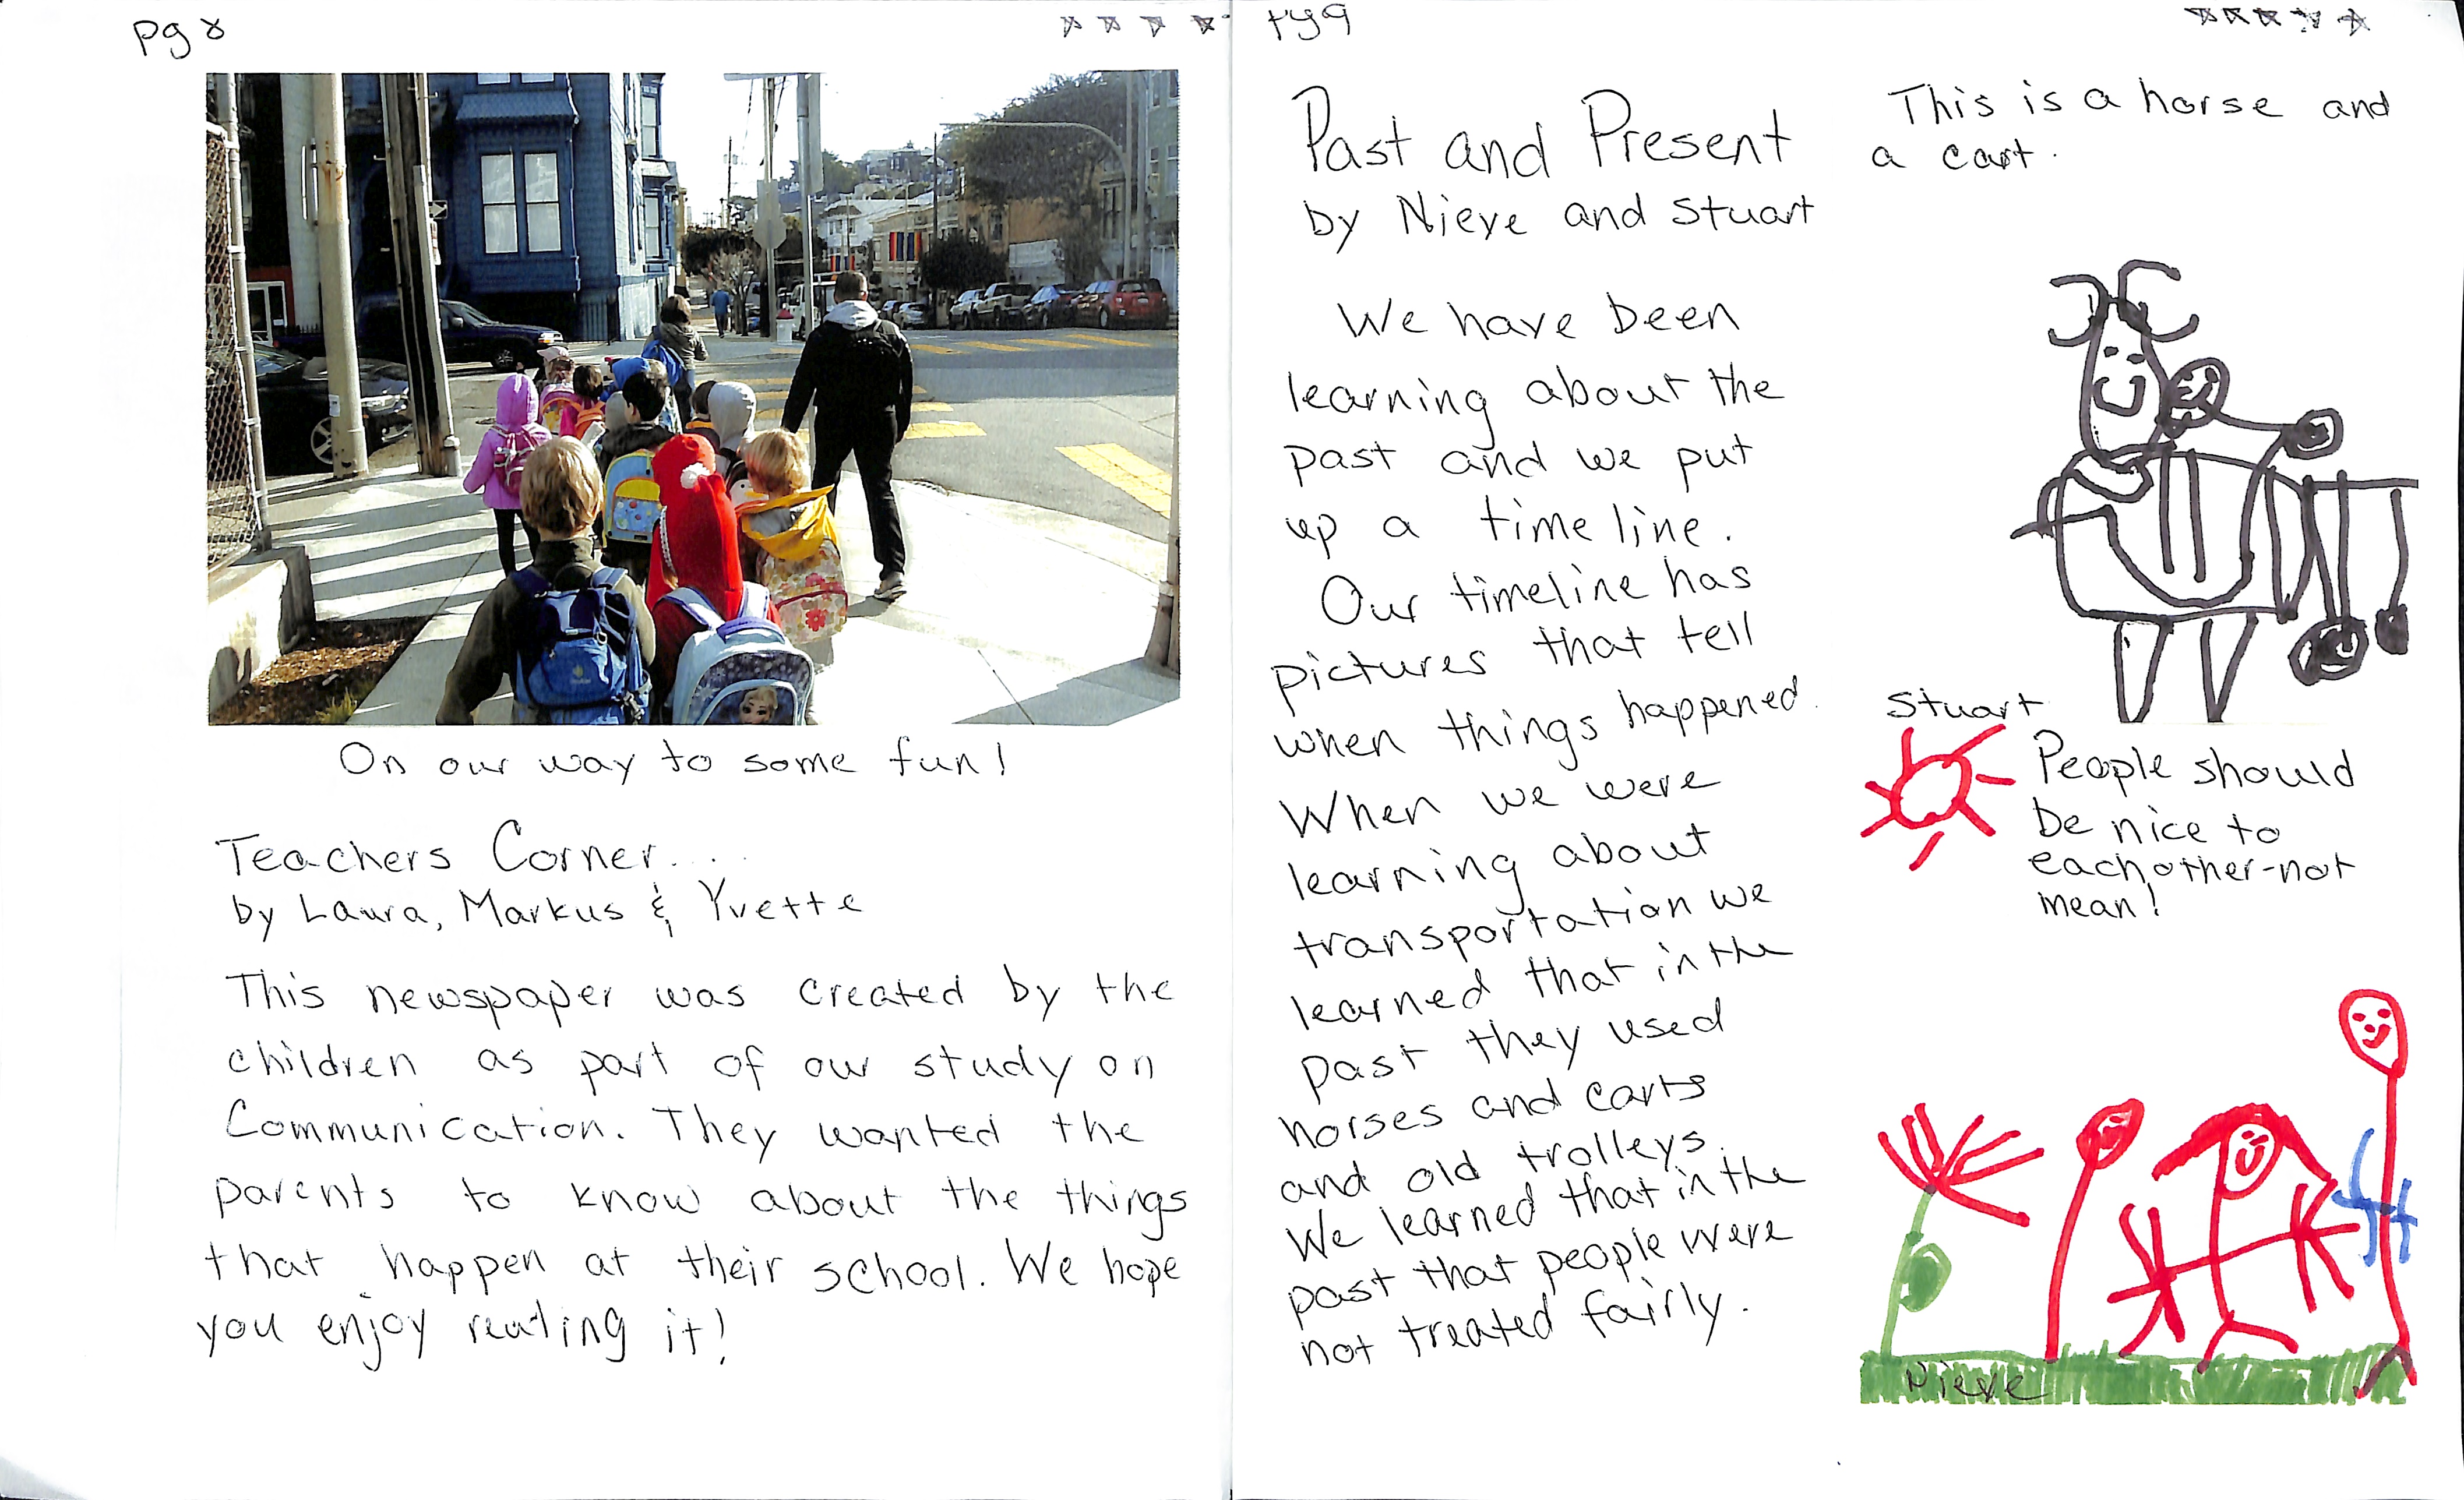 pg 8
On our way to some fun!
Teachers Corner...
by Laura, Markus & Yvette
This newspaper was created by the
children as part of our study on
Communication. They wanted the
parents to know about the things
that happen at their school. We hope
you enjoy reading it!
pg 9
Past and Present
by Nieve and Stuart
We have been
learning about the
past and we put
up a time line.
Our timeline has
pictures that tell
when things happened.
When we were
learning about
transportation we
learned that in the
past they used
horses and carts
and old trolleys.
We learned that in the
past that people were
not treated fairly.
This is a horse and
a cart.
Stuart
People should
be nice to
each other-not
mean!
Nieve